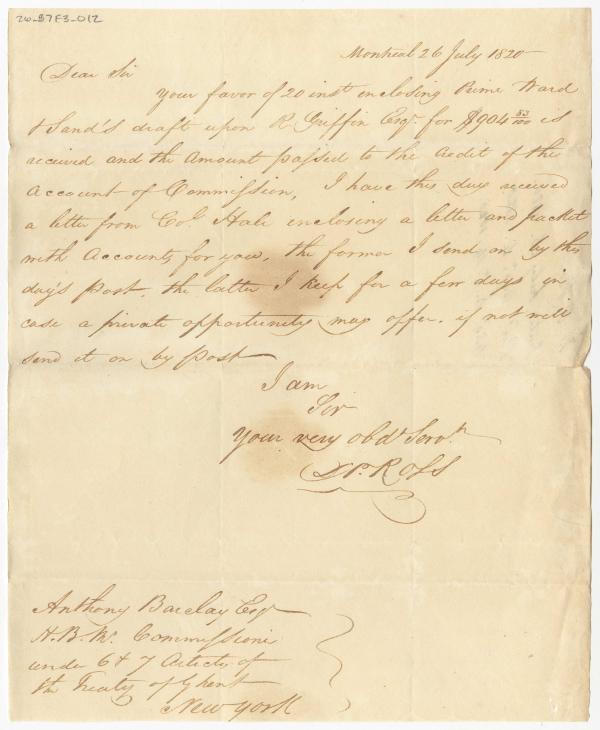 26_S7F3_012
Montreal 26 July 1820
Dear Sir
Your favor of 20 inst enclosing Prime Ward
& Sand's draft upon R. Griffin Esqr for $904 53/100 is
received and the Amount passed to the Credit of the
Account of Commission, I have this day received
a letter from Col. Hale enclosing a letter and packet
with Accounts for you, the former I send on by this
day's Post. the latter I keep for a few days in
case a private opportunity may offer. if not will
send it on by Post
I am
Sir
Your very obdt Servt.
Ross
Anthony Barclay Esqr
H.B.Ms. Commissione
under 6 & 7 Articles of
the Treaty of Ghent
New York